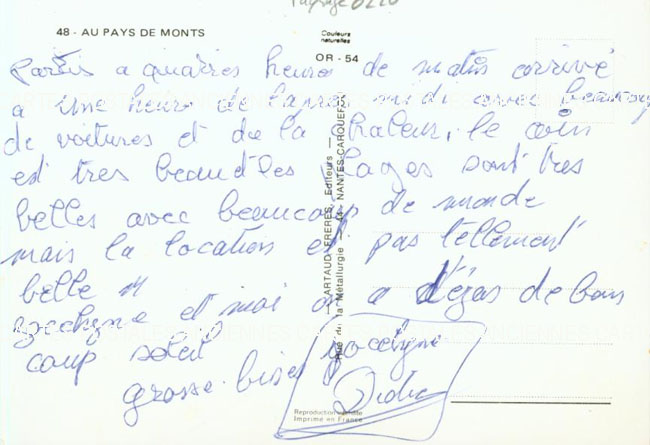 Paysage 0220
48 - AU PAYS DE MONTS
Couleurs
naturelles
OR - 54
partis a quatres heures de matin arrivé
a une heure de l'apres midi avec beaucoup
de voitures et de la chaleur, le coin
est tres beau et les plages sont tres
belles avec beaucoup de monde
mais la location est pas tellement
belle
jocelyne et moi on a déjas de bon
coup soleil
grosse bises jocelyne
Didier
ARTAUD FRERES, Editeurs
Rue de la Métallurgie - 44 - NANTES-CARQUEFOU
Reproduction interdite
Imprimé en France